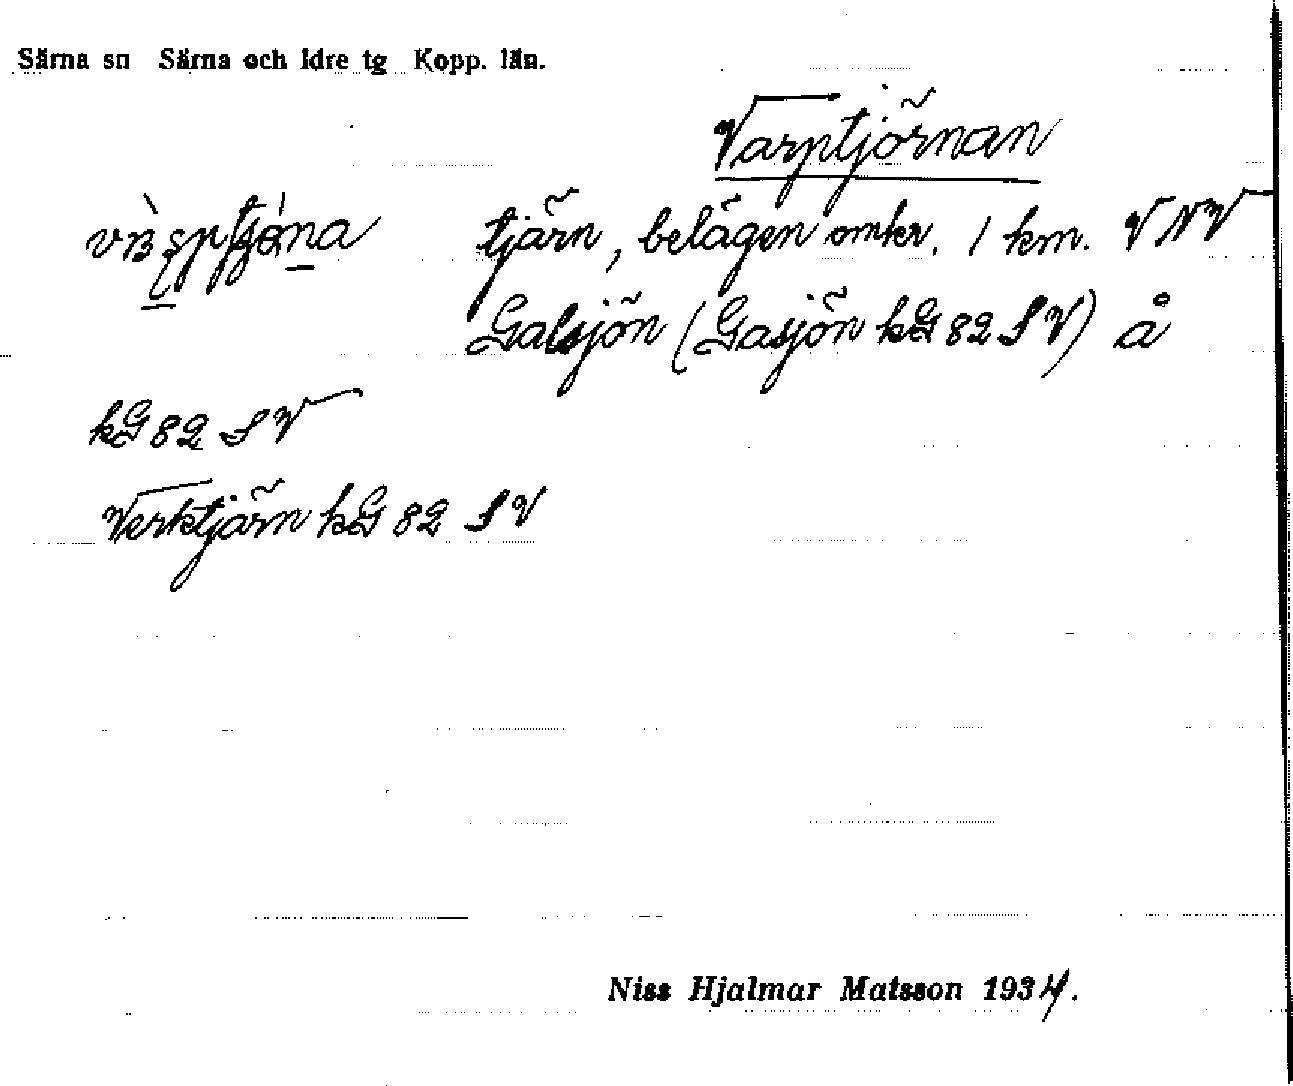 Särna sn Särna och Idre tg Kopp. län.
Varptjörnan
tjärn, belägen omkr. 1 km. VNV
Galsjön (Gasjön kG 82 SV) å
kG 82 SV
Verktjärn kG 82 SV
Niss Hjalmar Matsson 1934.